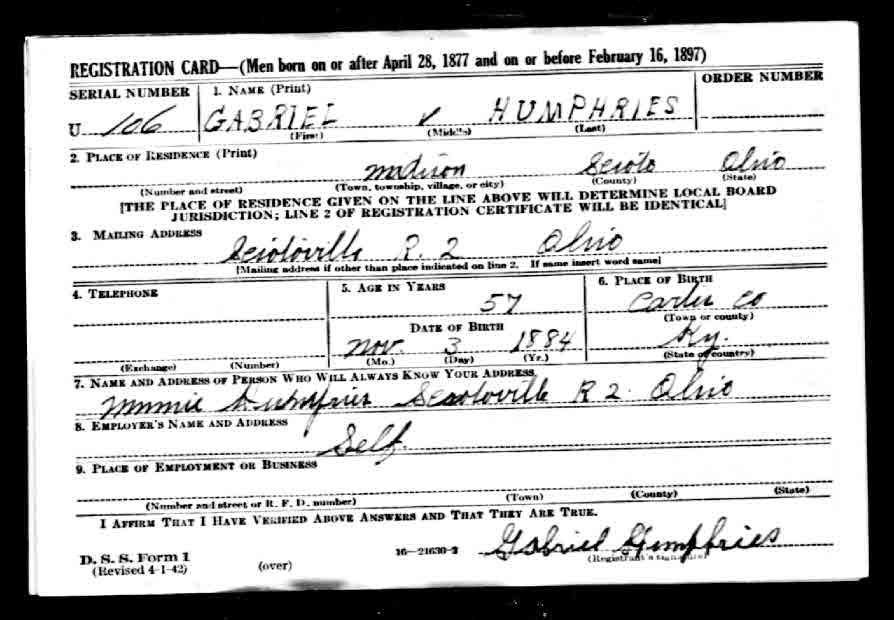 REGISTRATION CARD—(Men born on or after April 28, 1877 and on or before February 16, 1897)
SERIAL NUMBER 1. NAME (Print) ORDER NUMBER
U 106 GABRIEL HUMPHRIES
(First) (Middle) (Last)
2. PLACE OF RESIDENCE (Print)
Madison Scioto Ohio
(Number and street) (Town, township, village, or city) (County) (State)
[THE PLACE OF RESIDENCE GIVEN ON THE LINE ABOVE WILL DETERMINE LOCAL BOARD
JURISDICTION; LINE 2 OF REGISTRATION CERTIFICATE WILL BE IDENTICAL]
3. MAILING ADDRESS
Sciotoville R. 2 Ohio
[Mailing address if other than place indicated on line 2. If same insert word same]
4. TELEPHONE 5. AGE IN YEARS 6. PLACE OF BIRTH
57 Carter Co
DATE OF BIRTH (Town or county)
Nov. 3 1884 Ky.
(Exchange) (Number) (Mo.) (Day) (Yr.) (State or country)
7. NAME AND ADDRESS OF PERSON WHO WILL ALWAYS KNOW YOUR ADDRESS
Minnie Humphries Sciotoville R 2. Ohio
8. EMPLOYER'S NAME AND ADDRESS
Self.
9. PLACE OF EMPLOYMENT OR BUSINESS
(Number and street or R. F. D. number) (Town) (County) (State)
I AFFIRM THAT I HAVE VERIFIED ABOVE ANSWERS AND THAT THEY ARE TRUE.
D. S. S. Form 1 16—21630-2 Gabriel Humphries
(Revised 4-1-42) (over) (Registrant's signature)